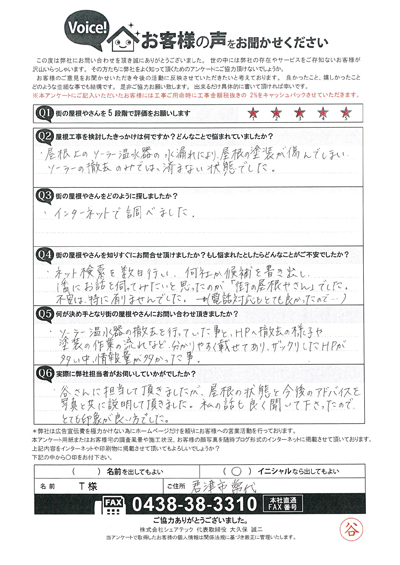 Voice!
お客様の声をお聞かせください
この度は弊社にお問い合わせを頂き誠にありがとうございました。世の中には弊社の存在やサービスをご存知ないお客様が
沢山いらっしゃいます。その方たちに弊社をよく知って頂くためのアンケートにご協力頂けないでしょうか。
お客様のご意見をお聞かせいただき今後の活動に反映させていただきたいと考えております。良かったこと、嬉しかったこと
どのような些細な事でも結構です。是非ご協力お願い致します。出来るだけ具体的に書いて頂ければ幸いです。
※本アンケートにご記入いただいたお客様には工事ご用命時に工事金額総抜きの 2%をキャッシュバックさせていただきます。
Q1 街の屋根やさんを5段階で評価をお願いします
1 2 3 4 5
Q2 屋根工事を検討したきっかけは何ですか?どんなことで悩まれていましたか?
・屋根上のソーラー温水器の水漏れにより、屋根の塗装が傷んでしまい、
ソーラーの撤去のみでは、済まない状態でした。
Q3 街の屋根やさんをどのように探しましたか?
・インターネットで調べました。
Q4 街の屋根やさんを知りすぐにお問合せ頂けましたか?もし悩まれたとしたらどんなことがご不安でしたか?
・ネット検索を数日行ない、何社か候補を書き出し、
1番にお話を伺ってみたいと思ったのが「街の屋根やさん」でした。
不安は、特に有りませんでした。(電話対応もとても良かったので…)
Q5 何が決め手となり街の屋根やさんにお問い合わせ頂きましたか?
・ソーラー温水器の撤去を行っていた事と、HPへ撤去の様子や
塗装の作業の流れなど、分かりやすく載せてあり、ザックリしたHPが
多い中、情報量が多かった事。
Q6 実際に弊社担当者がお伺いしていかがでしたか?
・谷さんに担当して頂きましたが、屋根の状態と今後のアドバイスを
写真と共に説明して頂きました。私の話も良く聞いて下さったので、
とても印象が良い方でした。
※弊社は広告宣伝費を極力かけない為にホームページだけを頼りにお客様への営業活動を行っております。
本アンケート用紙またはお客様宅の調査風景や施工状況、お客様の顔写真を随時ブログ形式のインターネットに掲載させて頂いております。
上記内容をインターネットや印刷物に掲載させて頂いてもよろしいでしょうか?
下記の中から〇印をお付け下さい。
( )名前を出してもよい
(○)イニシャルなら出してもよい
お名前 T様
ご住所 君津市常代
FAX 0438-38-3310 本社直通 FAX番号
ご協力ありがとうございました。
株式会社シェアテック 代表取締役 大久保 誠二
当アンケートで取得したお客様の個人情報は関係法規に基づき厳正に管理いたします。
谷